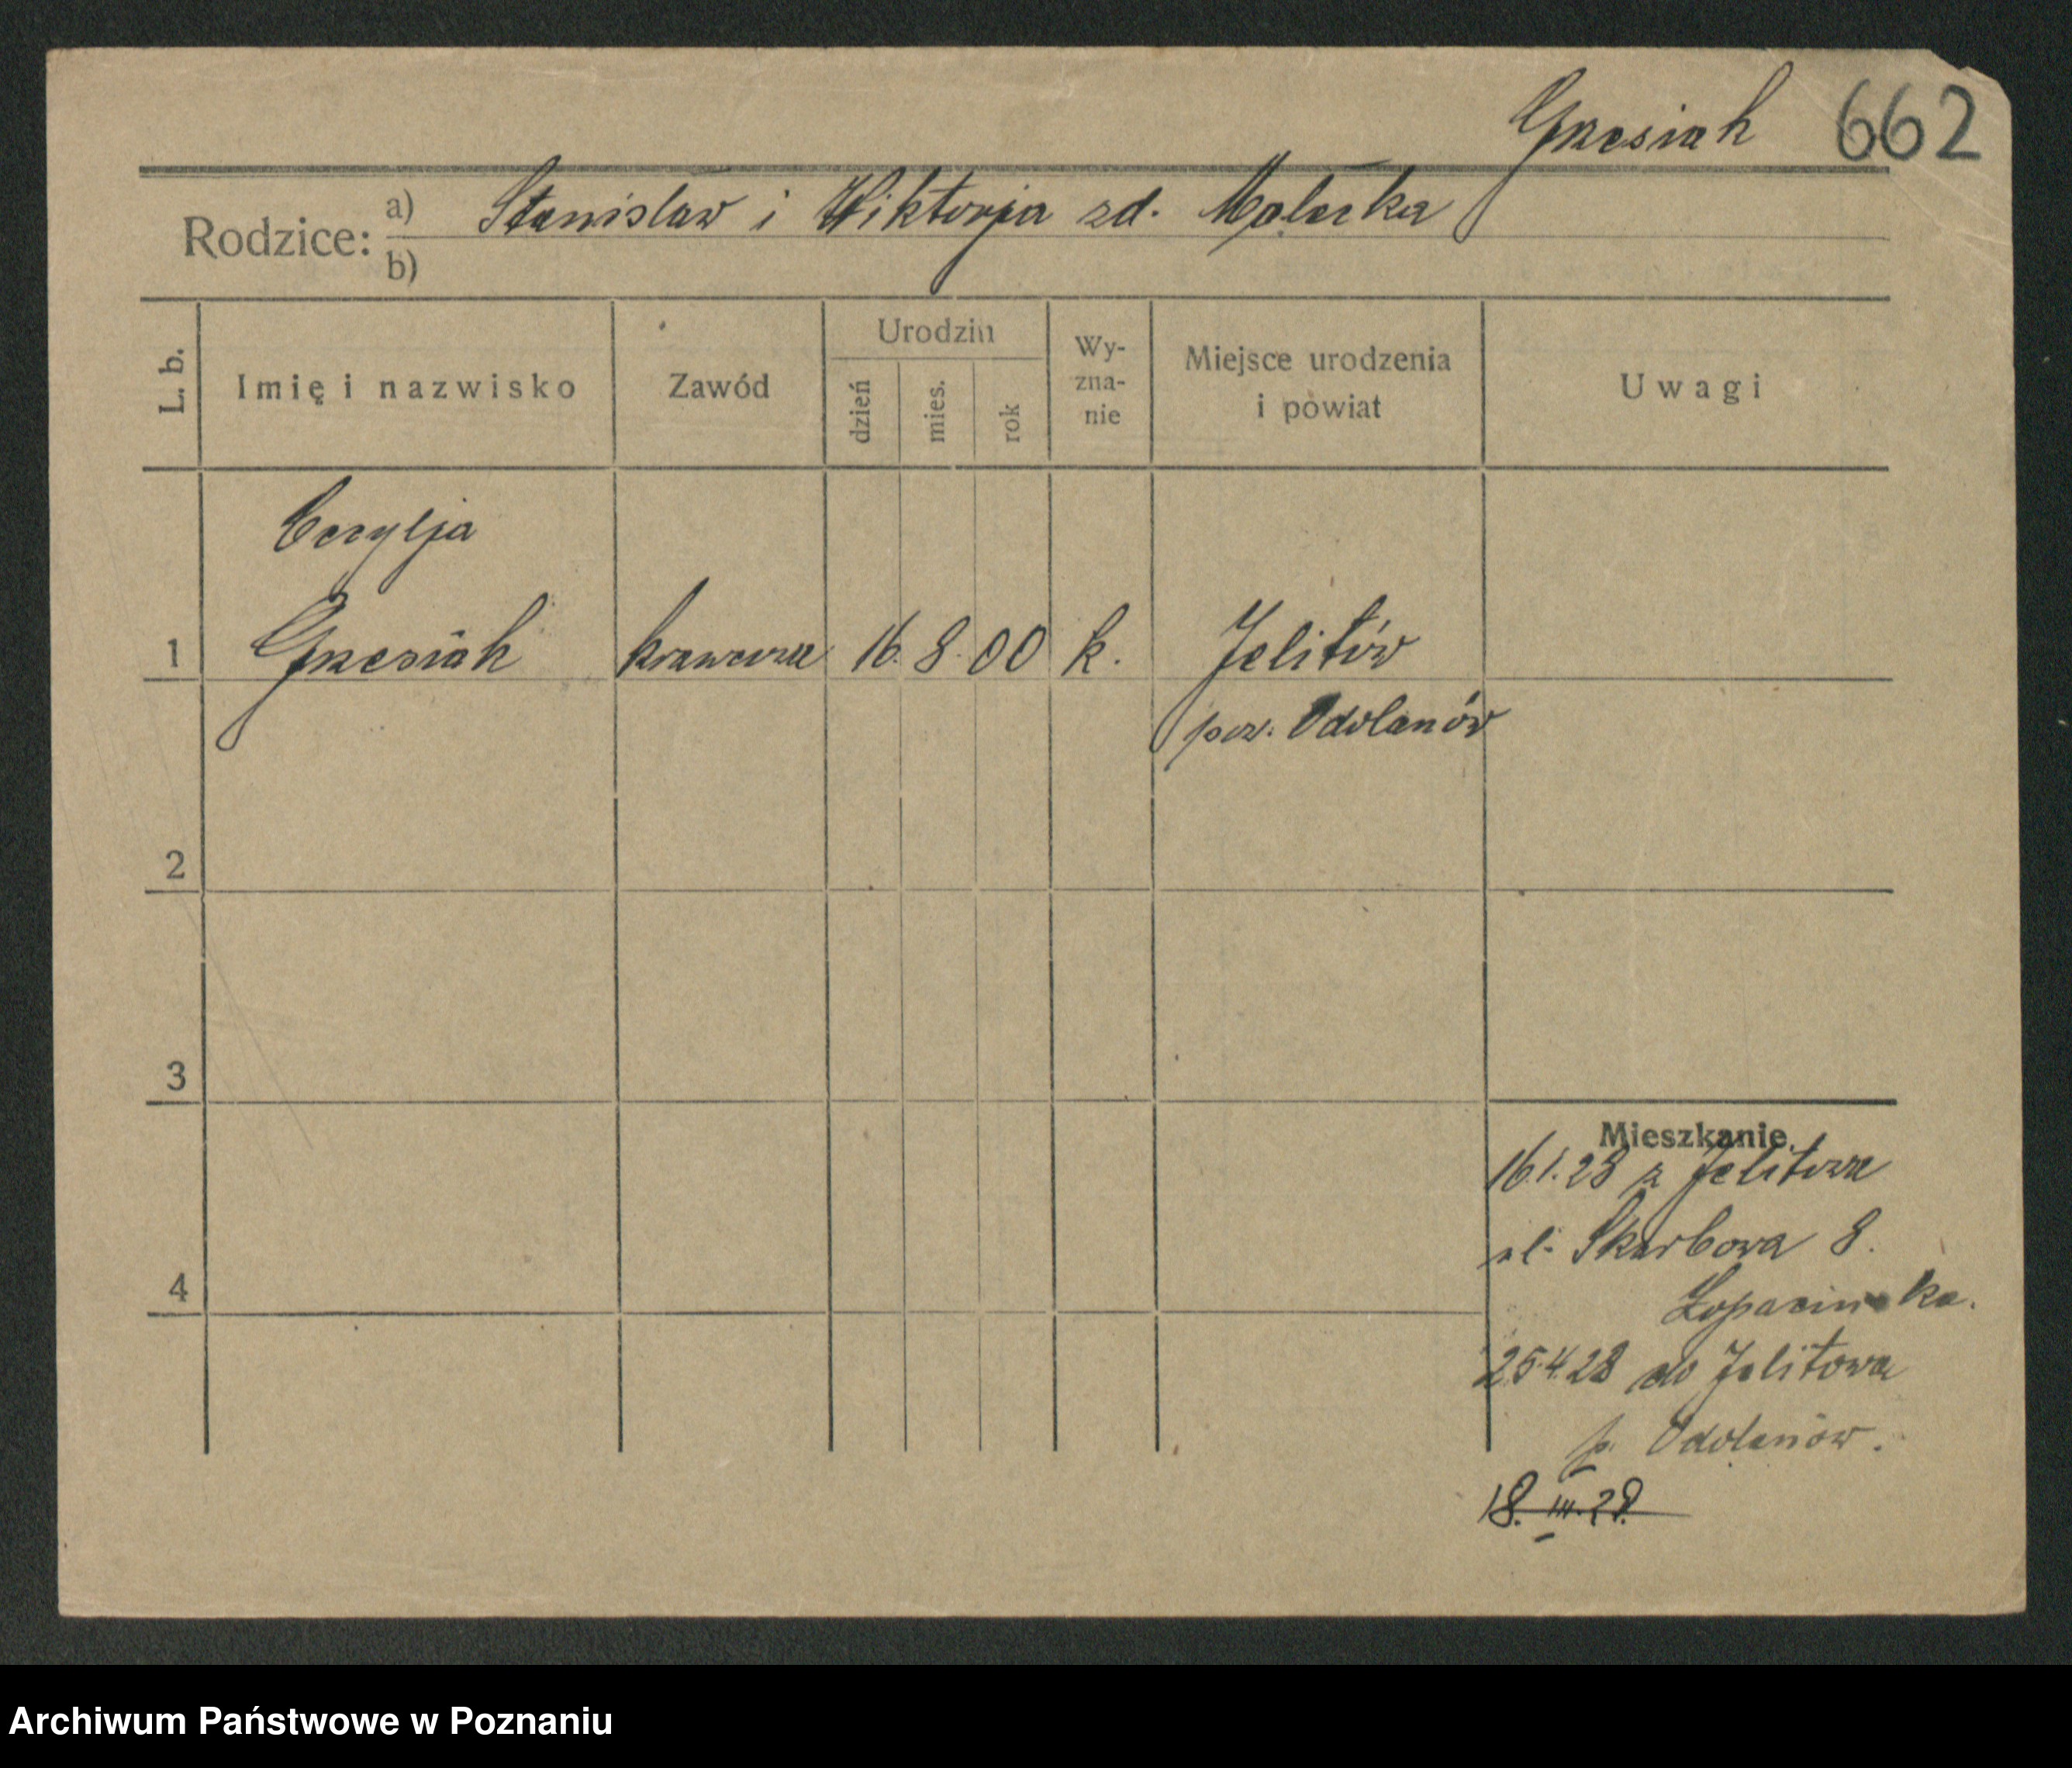 Grzesiak 662
Rodzice: a) Stanisław i Wiktorja zd. Małecka
b)
L. b. Imię i nazwisko Zawód Urodzin dzień mies. rok Wy-zna-nie Miejsce urodzenia i powiat Uwagi
Cecylja
1 Grzesiak krawcowa 16. 8. 00 k. Jelitów
pow. Odolanów
2
3
Mieszkanie.
16.1.28 z Jelitowa
ul. Skarbowa 8.
4
Łopacinska.
25.4.28 do Jelitowa
p. Odolanów.
18. III. 28.
Archiwum Państwowe w Poznaniu